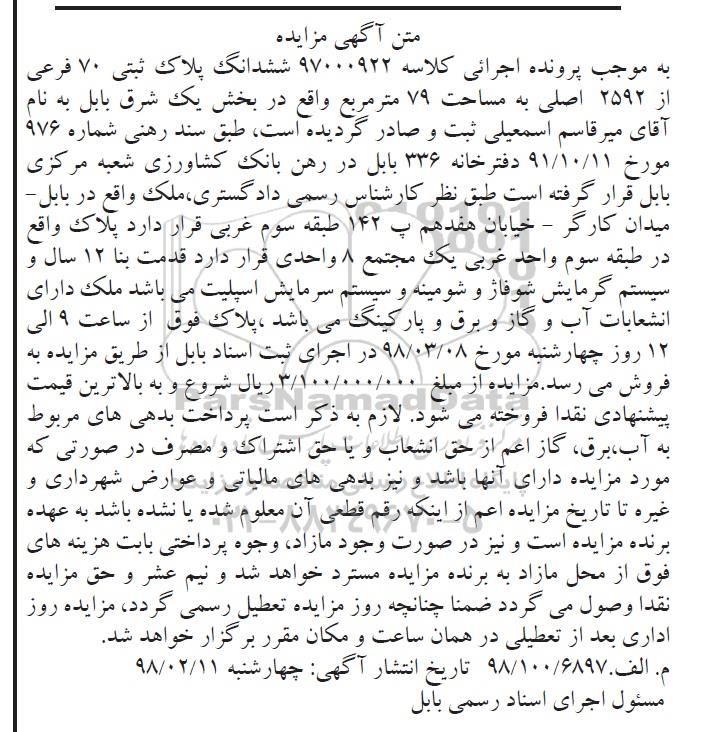 متن آگهی مزایده
به موجب پرونده اجرائی کلاسه ۹۷۰۰۰۹۲۲ ششدانگ پلاک ثبتی ۷۰ فرعی
از ۲۵۹۲ اصلی به مساحت ۷۹ مترمربع واقع در بخش یک شرق بابل به نام
آقای میرقاسم اسمعیلی ثبت و صادر گردیده است، طبق سند رهنی شماره ۹۷۶
مورخ ۹۱/۱۰/۱۱ دفترخانه ۳۳۶ بابل در رهن بانک کشاورزی شعبه مرکزی
بابل قرار گرفته است طبق نظر کارشناس رسمی دادگستری،ملک واقع در بابل–
میدان کارگر – خیابان هفدهم پ ۱۴۲ طبقه سوم غربی قرار دارد پلاک واقع
در طبقه سوم واحد غربی یک مجتمع ۸ واحدی قرار دارد قدمت بنا ۱۲ سال و
سیستم گرمایش شوفاژ و شومینه و سیستم سرمایش اسپلیت می باشد ملک دارای
انشعابات آب و گاز و برق و پارکینگ می باشد ،پلاک فوق از ساعت ۹ الی
۱۲ روز چهارشنبه مورخ ۹۸/۰۳/۰۸ در اجرای ثبت اسناد بابل از طریق مزایده به
فروش می رسد.مزایده از مبلغ ۳/۱۰۰/۰۰۰/۰۰۰ ریال شروع و به بالاترین قیمت
ParsNamadData
پیشنهادی نقدا فروخته می شود. لازم به ذکر است پرداخت بدهی های مربوط
به آب،برق، گاز اعم از حق انشعاب و یا حق اشتراک و مصرف در صورتی که
مورد مزایده دارای آنها باشد و نیز بدهی های مالیاتی و عوارض شهرداری و
پایگاه اطلاع رسانی مناقصه و مزایده
غیره تا تاریخ مزایده اعم از اینکه رقم قطعی آن معلوم شده یا نشده باشد به عهده
۰۲۱–۸۸۳۴۹۶۷۰–۵
برنده مزایده است و نیز در صورت وجود مازاد، وجوه پرداختی بابت هزینه های
فوق از محل مازاد به برنده مزایده مسترد خواهد شد و نیم عشر و حق مزایده
نقدا وصول می گردد ضمنا چنانچه روز مزایده تعطیل رسمی گردد، مزایده روز
اداری بعد از تعطیلی در همان ساعت و مکان مقرر برگزار خواهد شد.
م. الف.۹۸/۱۰۰/۶۸۹۷ تاریخ انتشار آگهی: چهارشنبه ۹۸/۰۲/۱۱
مسئول اجرای اسناد رسمی بابل